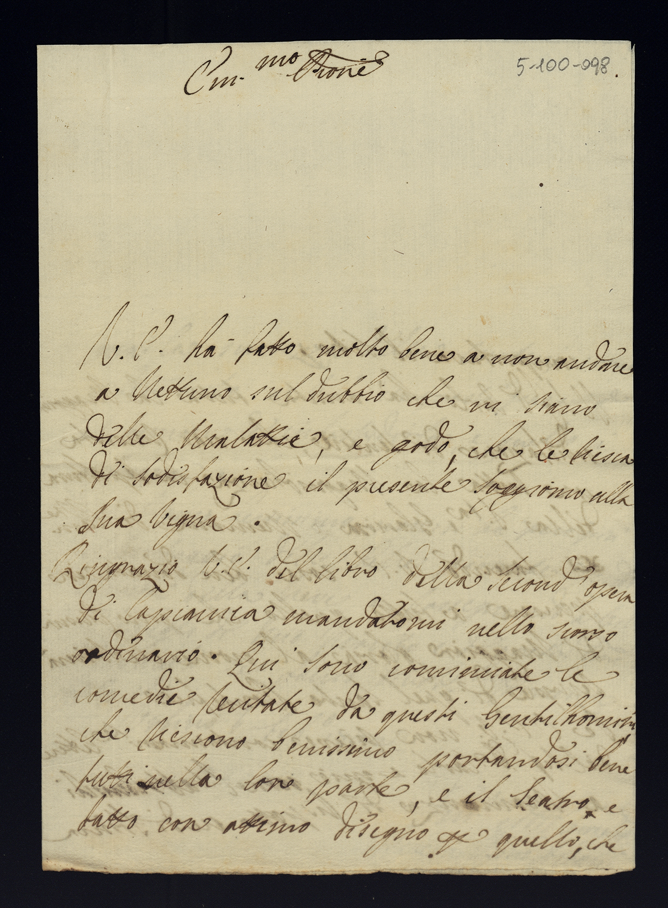 5-100-098.
Em.mo Prone
V. E. hà fatto molto bene a non andare
a Nettuno sul dubbio che vi siano
delle Malattie, e godo, che le riesca
di sodisfazione il presente soggiorno alla
sua vigna.
Ringrazio V. E. del libro della second' opera
di Capranica mandatomi nello scorso
ordinario. Qui sono cominciate le
comedie recitate da questi Gentilhomini
che riescono benissimo portandosi bene
tutti nella loro parte, e il Teatro e
fatto con ottimo disegno quello, che